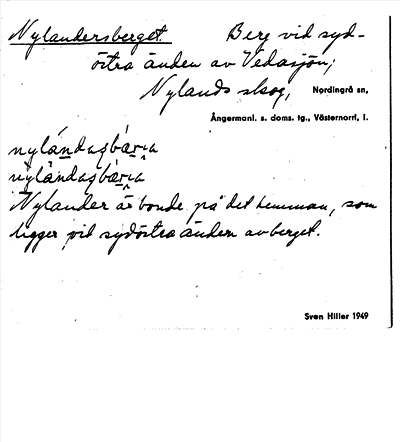 Nylandersberget. Berg vid syd-
östra änden av Vedasjön;
Nylands skog, Nordingrå sn,
Ångermanl. s. doms. tg., Västernorrl. l.
Nylander är bonde på det hemman, som
ligger vid sydöstra änden av berget.
Sven Hiller 1949